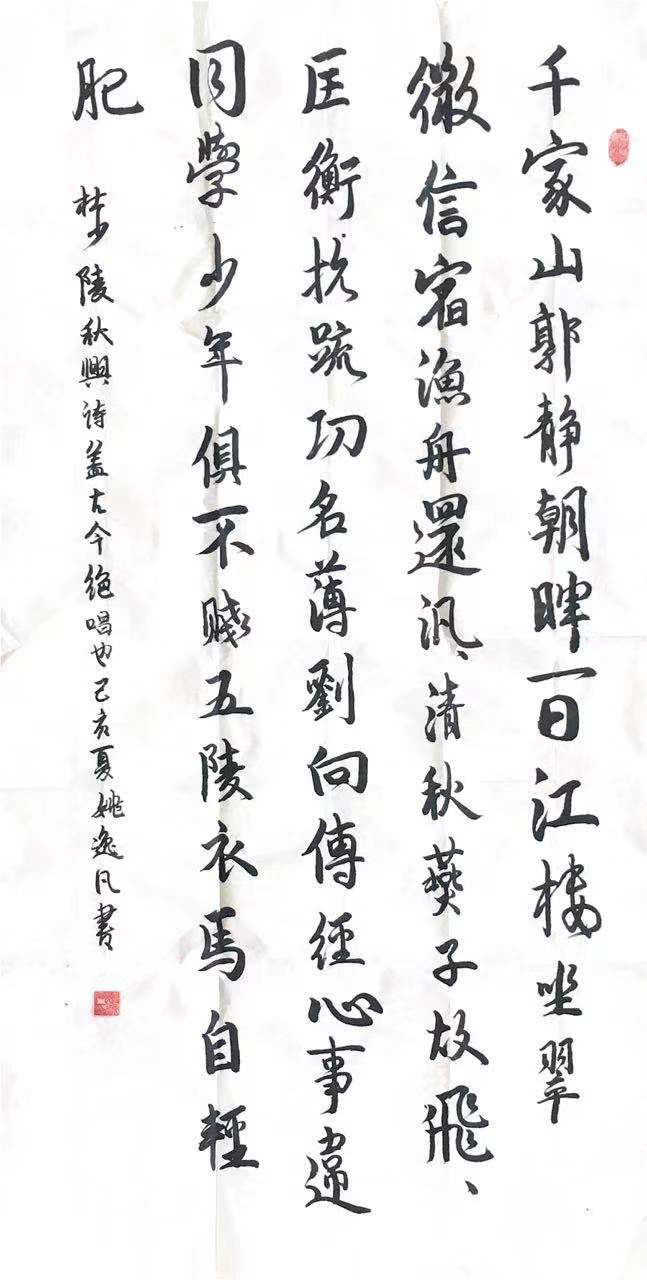 千家山郭静朝暉一日江樓坐翠
微信宿漁舟還汎、清秋燕子故飛、
匡衡抗疏功名薄劉向傳經心事違
同學少年俱不賤五陵衣馬自輕
肥
杜少陵秋興诗盖古今絶唱也己亥夏姚逸凡書